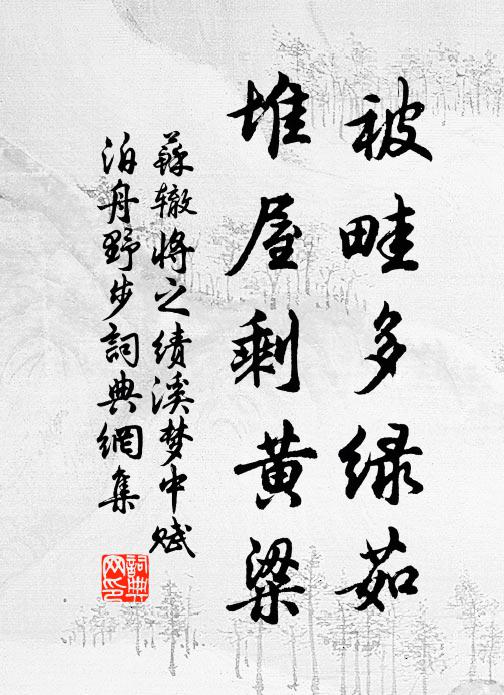 被畦多绿茹
堆屋剩黄粱
蘇辙將之绩溪梦中赋
泊舟野步詞典網集
詞典网印